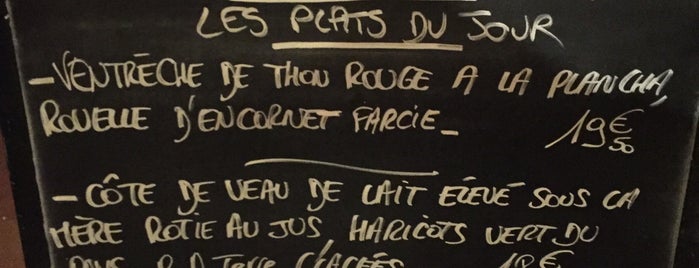 LES PLATS DU JOUR
- VENTRÈCHE DE THON ROUGE A LA PLANCHA,
ROUELLE D'ENCORNET FARCIE - 19€50
- CÔTE DE VEAU DE LAIT ÉLEVÉ SOUS LA
MÈRE ROTIE AU JUS HARICOTS VERT DU